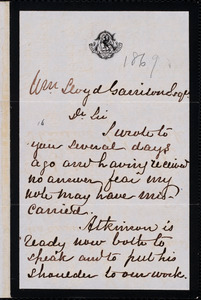 1869.
Wm Lloyd Garrison Esqr
Dr Sir
I wrote to
you several days
ago and having received
no answer, fear my
note may have mis-
carried.
Atkinson is
ready now both to
speak and to put his
shoulder to our work.